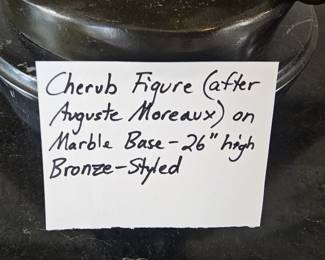 Cherub Figure (after
Auguste Moreaux) on
Marble Base - 26" high
Bronze-Styled